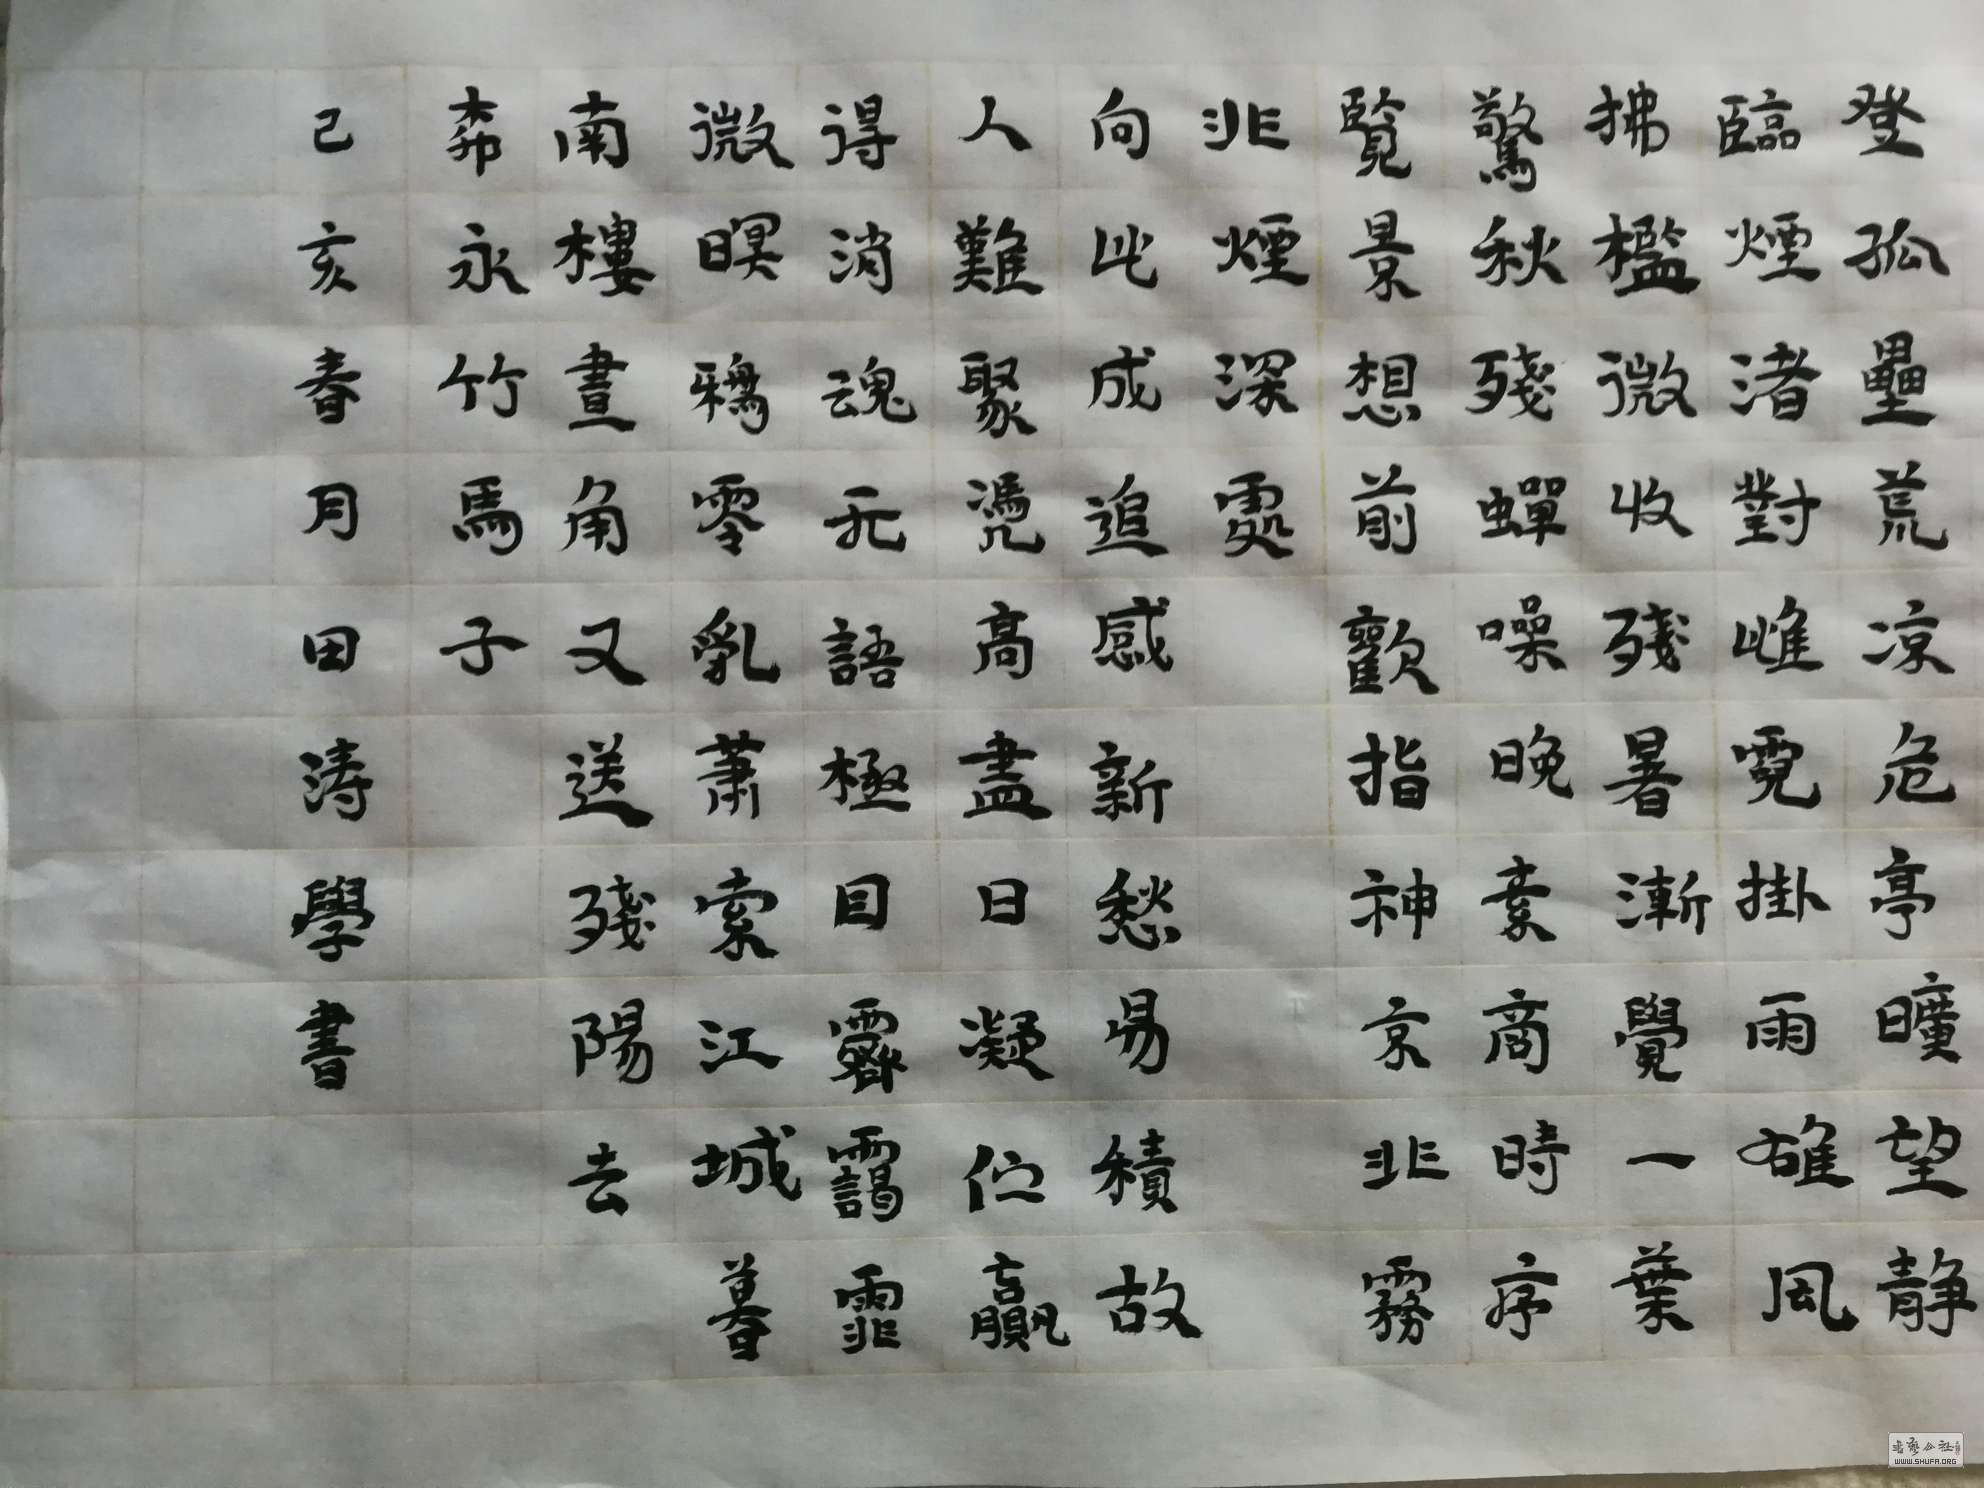 登孤壘荒凉危亭曠望静
臨煙渚對雌霓掛雨雄風
拂檻微收殘暑漸覺一葉
驚秋殘蟬噪晚素商時序
覽景想前歡指神京非霧
非煙深處
向此成追感新愁易積故
人難聚凴高盡日凝佇贏
得消魂无語極目霽靄霏
微暝鴉零乱蕭索江城暮
南樓晝角又送殘陽去
柳永竹馬子
己亥春月田涛學書
WWW.SHUFA.ORG